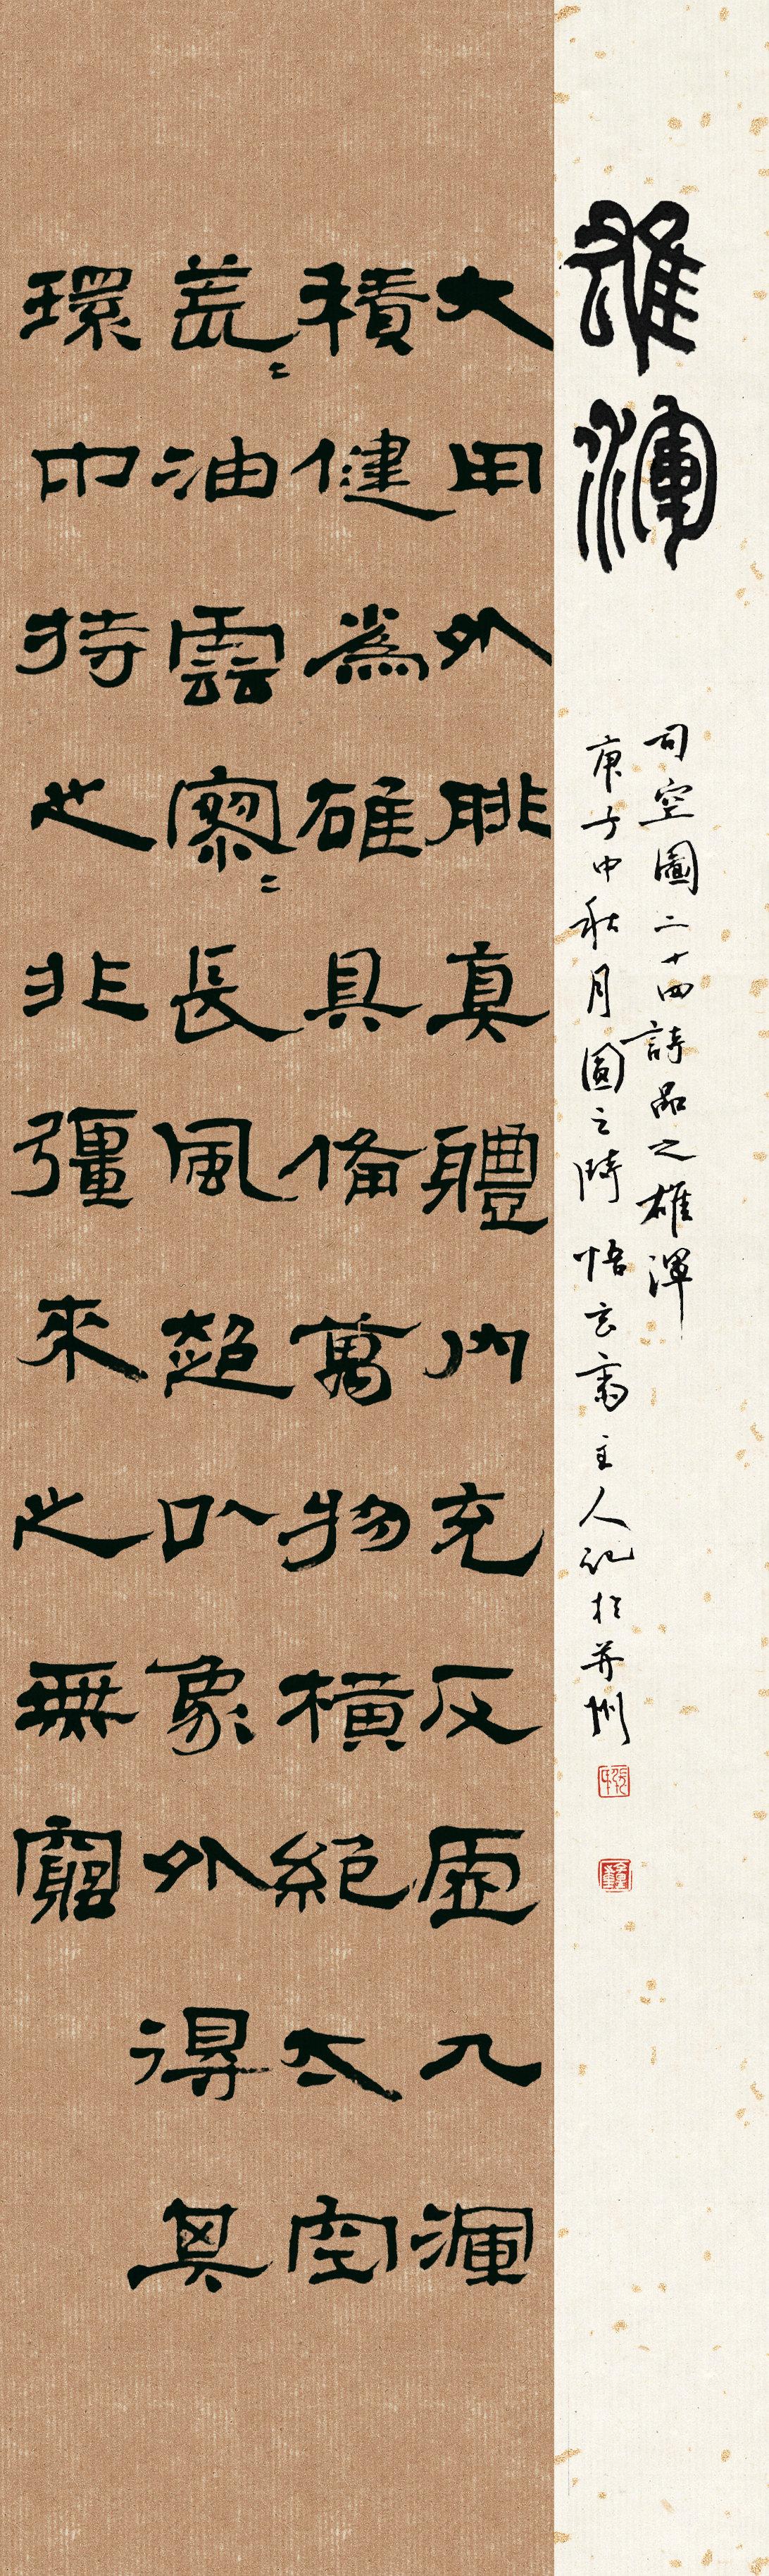 雄渾
司空圖二十四詩品之雄渾
庚子中秋月圆之時悟玄齋主人記於并州
大用外腓真體內充反虛入渾
積健為雄具備萬物橫絕太空
荒〻油雲寥〻長風超以象外得其
環中持之非彊來之無窮